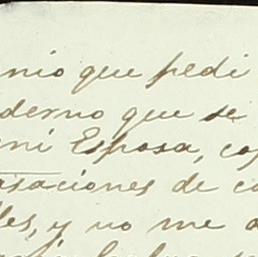 nio que pedi
derno que se
mi Esposa, co
rsaciones de co
les, y no me a